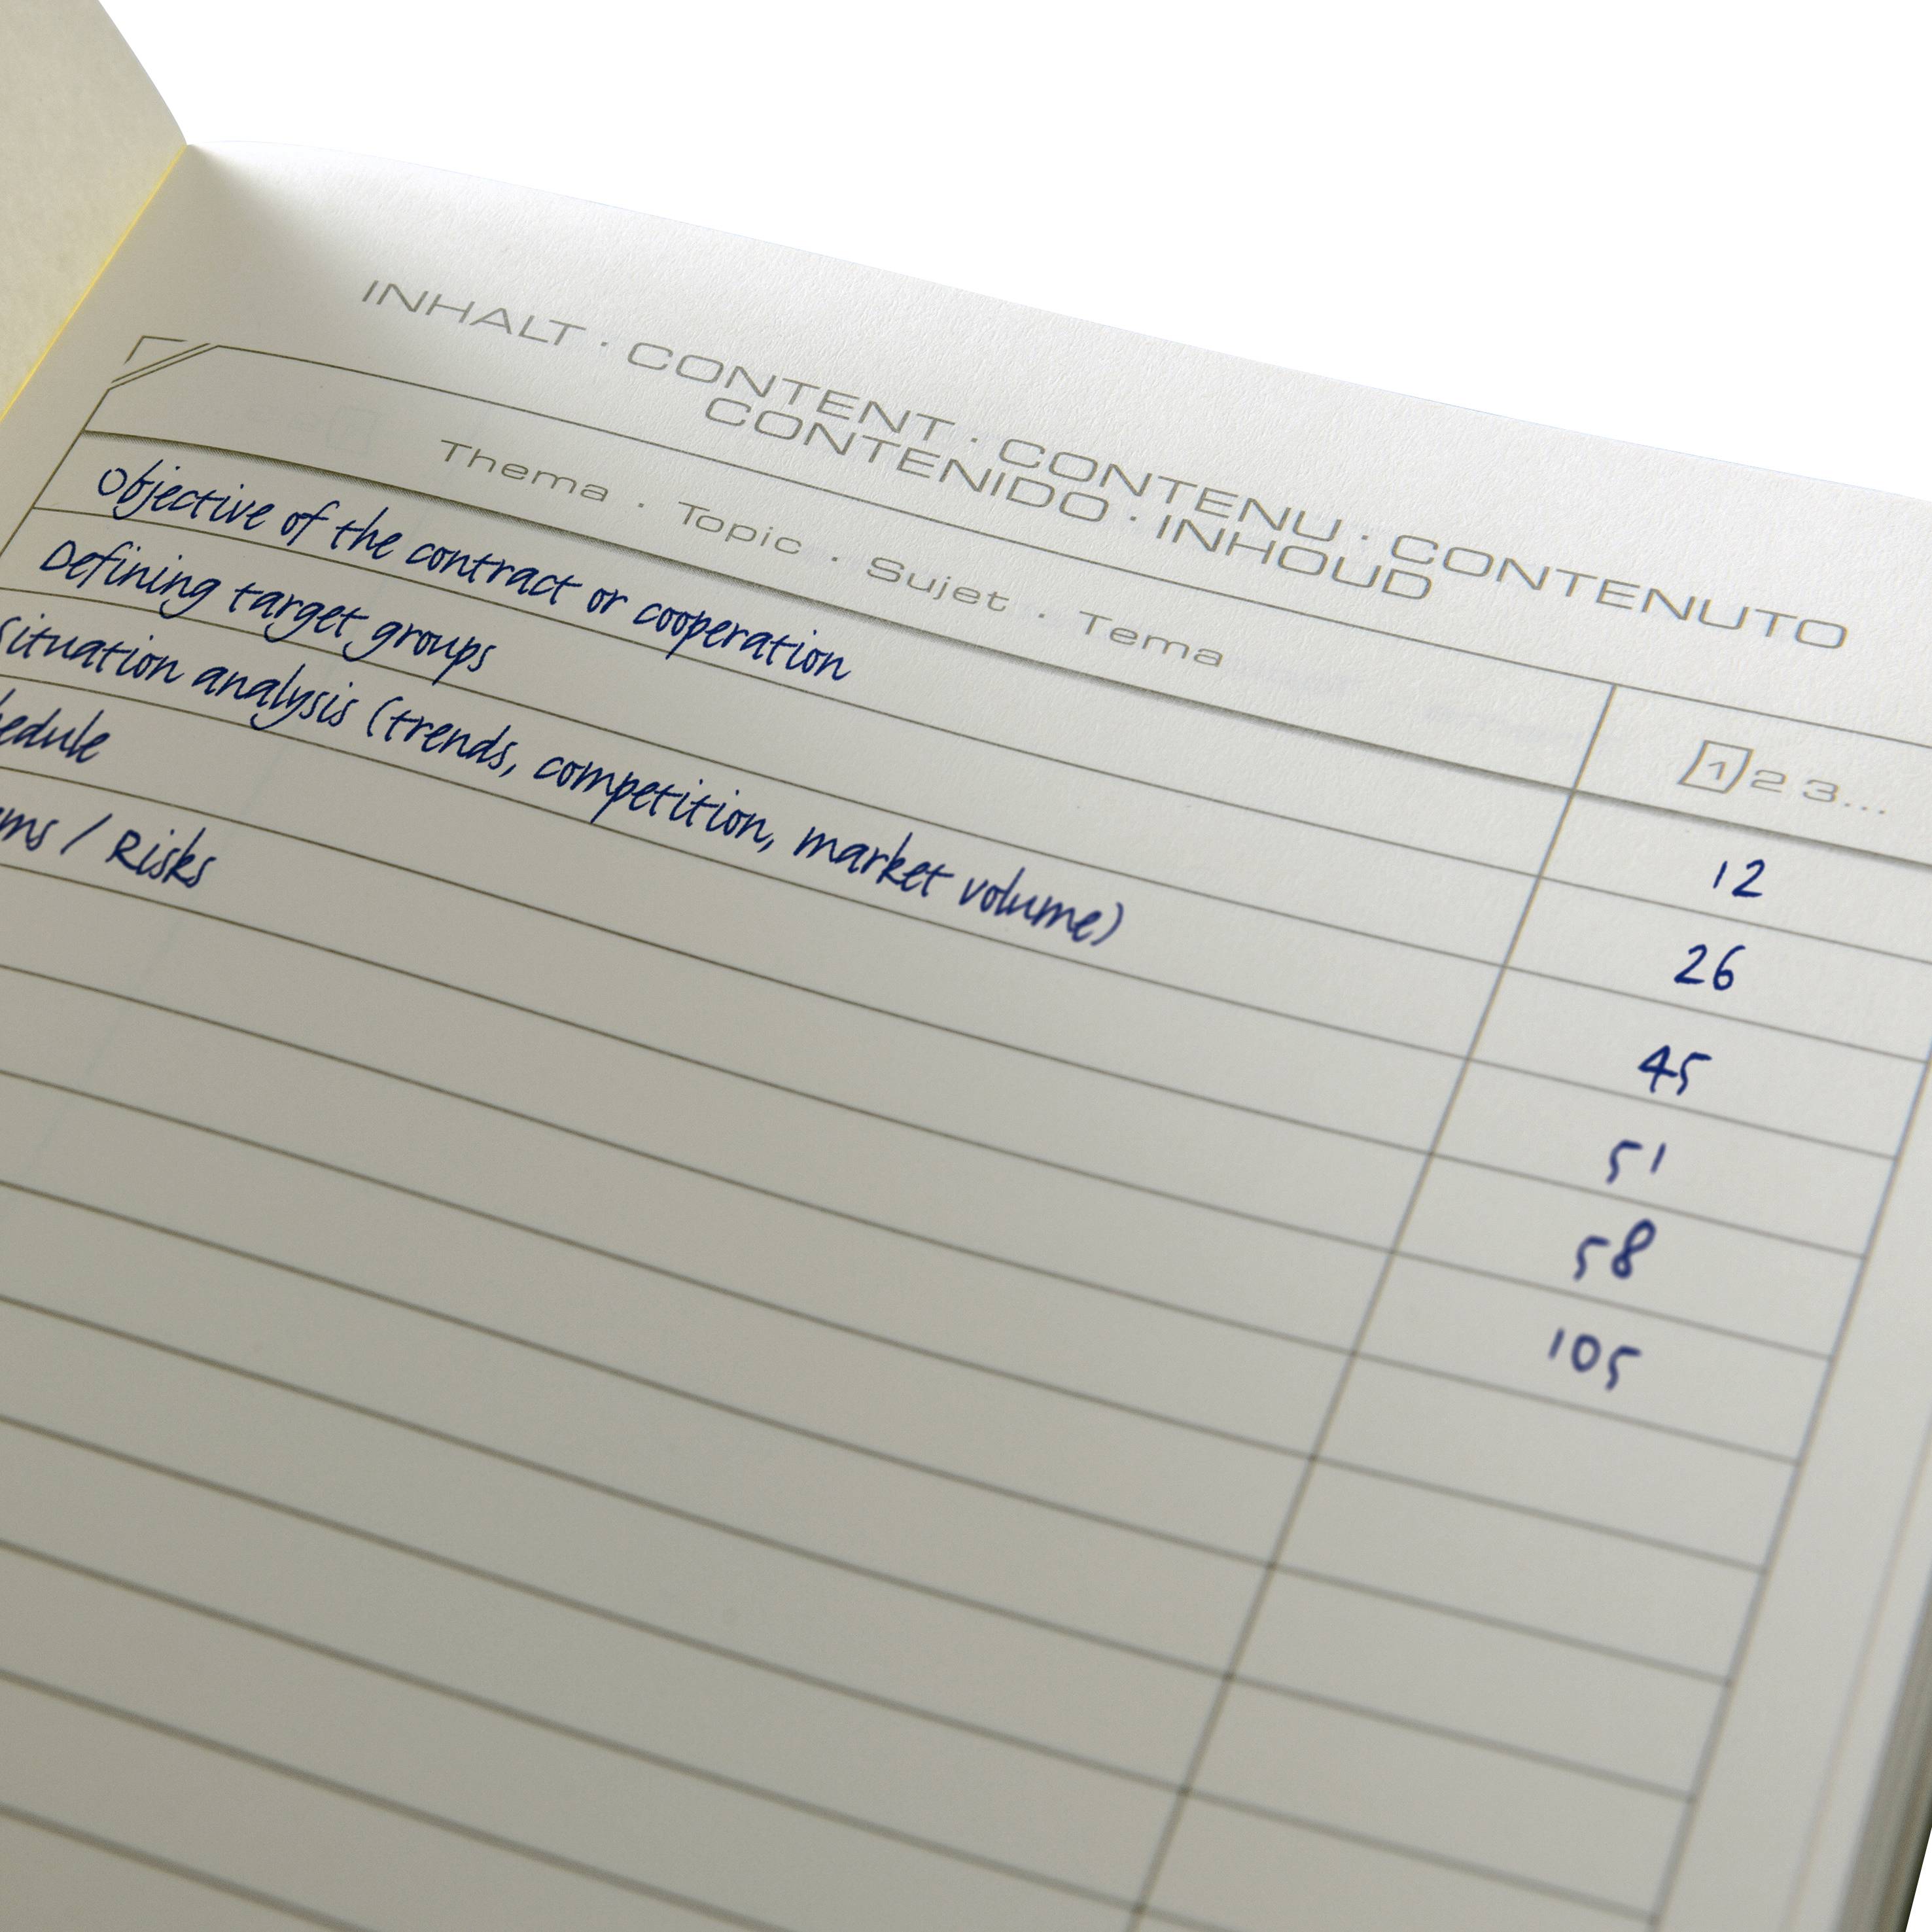 INHALT · CONTENT · CONTENU · CONTENUTO
CONTENIDO · INHOUD
Thema · Topic · Sujet · Tema
1 2 3...
Objective of the contract or cooperation 12
Defining target groups 26
Situation analysis (trends, competition, market volume) 45
hedule 51
ms / Risks 58
105